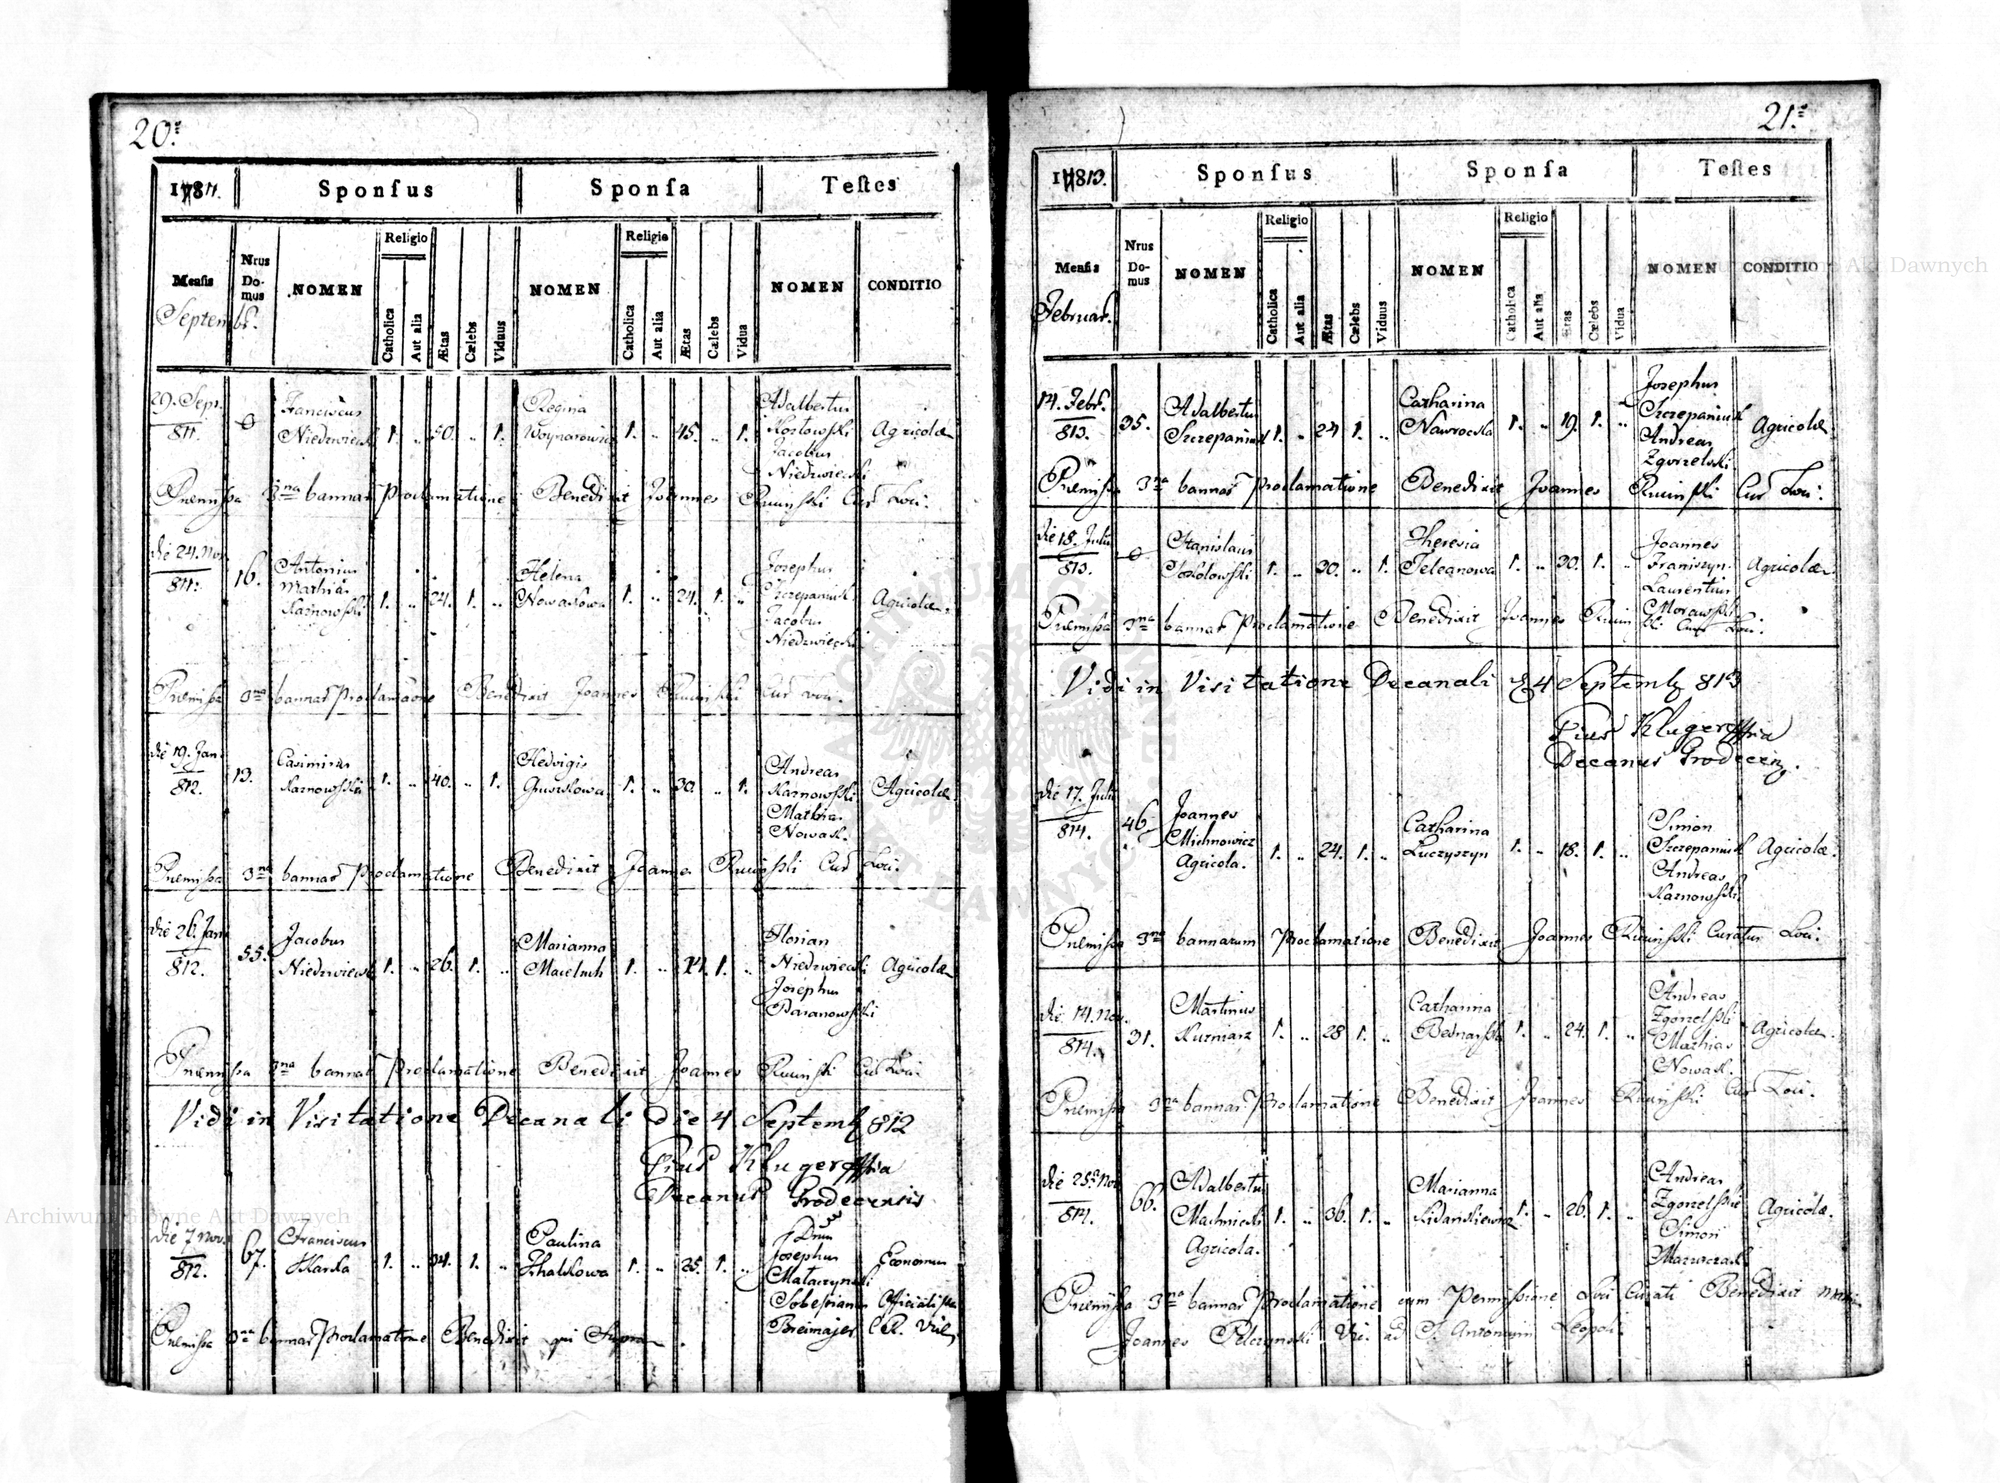 20.
1811.
Sponſus
Sponſa
Teſtes
Menſis
Septembr.
Nrus Do-mus
NOMEN
Religio
Catholica
Aut alia
Ætas
Cælebs
Viduus
NOMEN
Religio
Catholica
Aut alia
Ætas
Cælebs
Vidua
NOMEN
CONDITIO
29. Sept. Franciscus Regina Adalbertus
811. 0 Niedzwiecki 1. „ 50. „ 1. Woynarowicz 1. „ 45. „ 1. Kozłowski Agricolæ
Jacobus
Niedzwiecki
Præmissa 3na bannar Proclamatione Benedixit Joannes Ruciński Cur Loci.
die 24. Nov. 16. Antonius Helena Josephus
811. Mathias Szczepaniak
Karnowski 1. „ 24. 1. „ Nowakowa 1. „ 24. 1. „ Jacobus Agricolæ.
Niedzwiecki
Præmissa 3na bannar Proclamaõone Benedixit Joannes Ruciński Cur Loci.
die 19. Jan. 13. Casimirus Hedvigis Andreas
812. Karnowski 1. „ 40. „ 1. 1. „ 30. „ 1. Karnowski Agricolæ.
Mathias
Nowak.
Præmissa 3na bannar Proclamatione Benedixit Joannes Ruciński Cur Loci.
die 26. Jan. 55. Jacobus Marianna Florian
812. Niedzwiecki 1. „ 26. 1. „ 1. „ 14. 1. „ Niedzwiecki Agricolæ
Josephus
Baranowski
Præmissa 3na bannar Proclamatione Benedixit Joannes Ruciński Cur Loci.
Vidi in Visitatione Decanali die 4 Septemb 812
Pius Kluger
Decanus Grodecensis
die 7 Nov. 67. Franciscus Paulina Josephus Œconomus
812. 1. „ 34. 1. „ 1. „ 25. 1. „
Præmissa 3na bannar Proclamatione Benedixit qui Supra
21.
1813.
Sponſus
Sponſa
Teſtes
Menſis
Februar.
Nrus Do-mus
NOMEN
Religio
Catholica
Aut alia
Ætas
Cælebs
Viduus
NOMEN
Religio
Catholica
Aut alia
Ætas
Cælebs
Vidua
NOMEN
CONDITIO
14. Febr. 35. Adalbertus Catharina Josephus
813. Szczepaniak 1. „ 24 1. „ Nawrocka 1. „ 19. 1. „ Szczepaniak Agricolæ
Andreas
Zgorzelski
Præmissa 3na bannar Proclamatione Benedixit Joannes Ruciński Cur Loci.
die 18. Julii 0 Stanislaus Theresia Joannes
813. Sokołowski 1. „ 30. „ 1. 1. „ 30. 1. „ Agricolæ
Laurentius
Morawski
Præmissa 3na bannar Proclamatione Benedixit Joannes Ruciński Cur Loci.
Vidi in Visitatione Decanali 4 Septemb 813
Pius Kluger
Decanus Grodecen.
die 17. Julii 46. Joannes Catharina Simon
814. Michnowicz 1. „ 24. 1. „ Łuczyszyn 1. „ 18. 1. „ Szczepaniak Agricolæ.
Agricola. Andreas
Karnowski.
Præmissa 3na bannarum Proclamatione Benedixit Joannes Ruciński Curatus Loci.
die 14. Nov. 31. Martinus Catharina Andreas
814. 1. „ 28 1. „ Bednarska 1. „ 24. 1. „ Zgorzelski Agricolæ.
Mathias
Nowak.
Præmissa 3na bannar Proclamatione Benedixit Joannes Ruciński Cur Loci.
die 25 Nov. 66. Adalbertus Marianna Andreas
814. Machnicki 1. „ 36. 1. „ 1. „ 26. 1. „ Zgorzelski Agricolæ.
Agricola. Simon
Mazurczak
Præmissa 3na bannar Proclamatione cum Permissione Loci Curati Benedixit
Joannes Pelczynski Vic. ad S. Antonium Leopoli.
Archiwum Główne Akt Dawnych
Archiwum Główne Akt Dawnych
ARCHIWUM GŁÓWNE AKT DAWNYCH